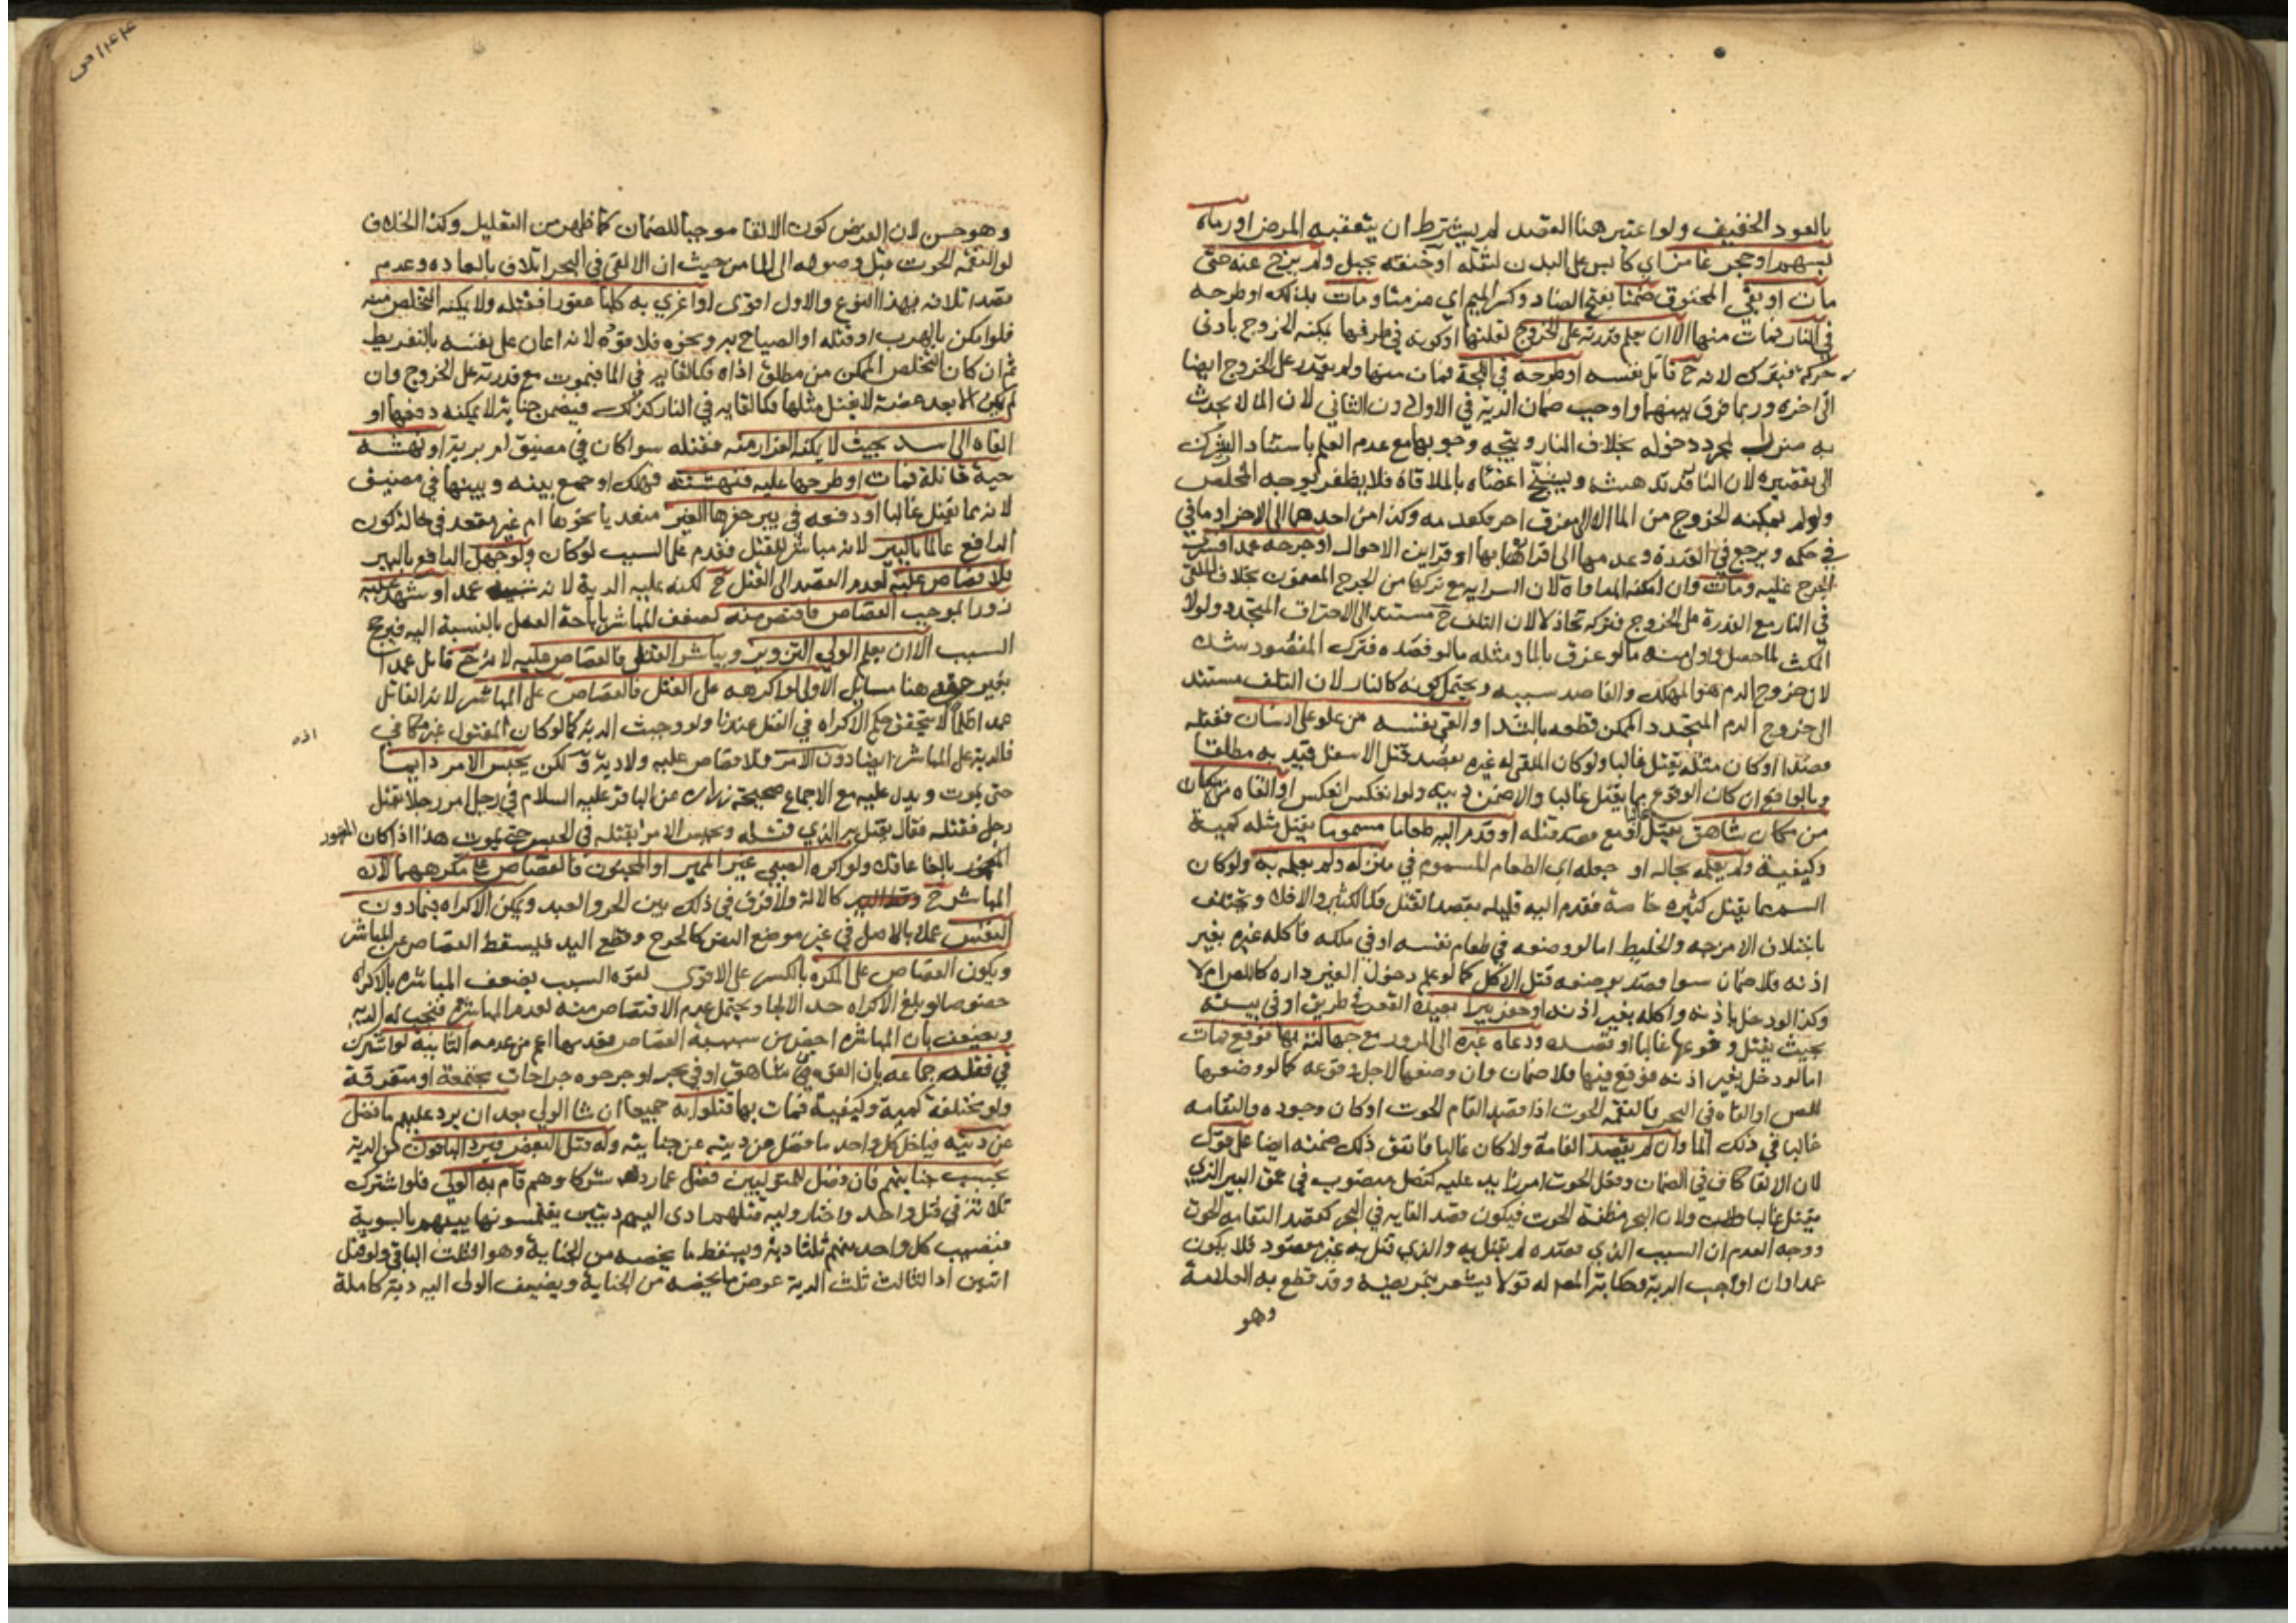 بالعود الخفيف ولو اعتبر هنا القصد لم يشترط ان يتعقبه المرض او رماه
بسهم او حجر غامز اي كابس على البدن لثقله او خنقه بحبل ولم يرخ عنه حتى
مات او بقي المخنوق ضمنا بفتح الضاد وكسر الميم اي مزمنا ومات بذلك او طرحه
في النار فمات منها الا ان يعلم قدرته على الخروج لقلتها او كونه في طرفها يمكنه الخروج بادنى
حركة فيترك لانه ح قاتل نفسه او طرحه في اللجة فمات منها ولم يقدر على الخروج ايضا
الى اخره وربما فرق بينهما واوجب ضمان الدية في الاول دون الثاني لان الما لا يحدث
به ضرر لمجرد دخوله بخلاف النار ويتجه وجوبها مع عدم العلم باستناد الترك
الى تقصيره لان النار قد تدهشه ويتشنج اعضاه بالملاقاة فلا يظفر بوجه المخلص
ولو لم يمكنه الخروج من الما الا الى مغرق اخر فكعدمه وكذا من احدهما الى الاخر او ما في
في حكمه ويرجع في القدرة وعدمها الى اقراره بها او قراين الاحوال او جرحه عمدا فسرى
الجرح عليه ومات وان امكنه المداواة لان السراية مع تركها من الجرح المضمون بخلاف الملقى
في النار مع القدرة على الخروج فتركه تخاذلا لان التلف ح مستند الى الاحتراق المتجدد ولولا
المكث لما حصل واولى منه ما لو غرق بالما ومثله ما لو فصده فترك المفصود شده
لان خروج الدم هو المهلك والفاصد سببه ويحتمل كونه كالنار لان التلف مستند
الى خروج الدم المتجدد الممكن قطعه بالشد او القى نفسه من علو على انسان فقتله
قصدا او كان مثله يقتل غالبا ولو كان الملقي له غيره بقصد قتل الاسفل قيد به مطلقا
وبالواقع ان كان الوقوع مما يقتل غالبا والا ضمن ديته ولو انعكس انعكس او القاه من مكان
من مكان شاهق يقتل غالبا او مع قصد قتله او قدم اليه طعاما مسموما يقتل مثله كمية
وكيفية ولم يعلمه بحاله او جعله اي الطعام المسموم في منزله ولم يعلمه به ولو كان
السم مما يقتل كثيره خاصة فقدم اليه قليله بقصد القتل فكالكثير والا فلا ويختلف
باختلاف الامزجة والخليط اما لو وضعه في طعام نفسه او في ملكه فاكله غيره بغير
اذنه فلا ضمان سوا قصد بوضعه قتل الاكل كما لو علم دخول الغير داره كاللص ام لا
وكذا لو دخل باذنه واكله بغير اذنه او حفر بيرا بعيدة القعر في طريق او في بيته
بحيث يقتل وقوعها غالبا او قصده ودعاه غيره الى المرور مع جهالته بها فوقع فمات
اما لو دخل بغير اذنه فوقع فيها فلا ضمان وان وضعها لاجل وقوعه كما لو وضعها
للص او القاه في البحر فالتقمه الحوت اذا قصد القام الحوت او كان وجوده والتقامه
غالبا في ذلك الما وان لم يقصد القامه ولا كان غالبا فاتفق ذلك ضمنه ايضا على قول
لان الالقا كاف في الضمان وفعل الحوت امر زايد عليه كنصل منصوب في عمق البير الذي
يقتل غالبا ولان البحر مظنة الحوت فيكون قصد القايه في البحر كقصد التقامه الحوت
ووجه العدم ان السبب الذي قصده لم يقتل به والذي قتل به غير مقصود فلا يكون
عمدا وان اوجب الدية وحكاية المصر له قولا يشعر بتمريضه وقد قطع به العلامة
وهو
١٤٤ ص
وهو حسن لان الفرض كون الالقا موجبا للضمان كما ظهر من التعليل وكذا الخلاف
لو التقمه الحوت قبل وصوله الى الما من حيث ان الالقى في البحر اتلاف بالعادة وعدم
قصد اتلافه بهذا النوع والاول اقوى او اغرى به كلبا عقورا فقتله ولا يمكنه التخلص منه
فلو امكن بالهرب او قتله او الصياح به ونحوه فلا قود لانه اعان على نفسه بالتفريط
ثم ان كان التخلص الممكن من مطلق اذاه فكالقايه في الما فيموت مع قدرته على الخروج وان
لم يكن الا بعد عضة لا يقتل مثلها فكالقايه في النار كذلك فيضمن جناية لا يمكنه دفعها او
القاه الى اسد بحيث لا يمكنه الفرار منه فقتله سوا كان في مضيق ام برية او نهشه
حية قاتلة فمات او طرحها عليه فنهشته فهلك او جمع بينه وبينها في مضيق
لانه مما يقتل غالبا او دفعه في بير حفرها الغير متعديا بحفرها ام غير متعد في حالة كون
الدافع عالما بالبير لانه مباشر للقتل فقدم على السبب لو كان ولو جهل الدافع بالبير
فلا قصاص عليه لعدم القصد الى القتل ح لكنه عليه الدية لانه شبيه عمد او شهد عليه
زورا بموجب القصاص فاقتص منه لضعف المباشر باباحة الفعل بالنسبة اليه فيرجح
السبب الا ان يعلم الولي التزوير ويباشر القتل فالقصاص عليه لانه ح قاتل عمدا
بغير حق هنا مسايل الاولى لو اكرهه على القتل فالقصاص على المباشر لانه القاتل
عمدا ظلما لا يتحقق حكم الاكراه في القتل عندنا ولو وجبت الدية كما لو كان المقتول غير مكافي
فالدية على المباشر ايضا دون الامر فلا قصاص عليه ولا دية و لكن يحبس الامر دايما
اذه
حتى يموت ويدل عليه مع الاجماع صحيحة زرارة عن الباقر عليه السلام في رجل امر رجلا بقتل
رجل فقتله فقال يقتل به الذي قتله ويحبس الامر بقتله في الحبس حتى يموت هذا اذا كان المقهور
المقهور بالغا عاقلا ولو اكره الصبي غير المميز او المجنون فالقصاص على مكرههما لان
المباشر ح كالالة ولا فرق في ذلك بين الحر والعبد ويمكن الاكراه فيما دون
النفس عملا بالاصل في غير موضع النص كالجرح وقطع اليد فيسقط القصاص عن المباشر
ويكون القصاص على المكره بالكسر على الاقوى لقوة السبب بضعف المباشرة بالاكراه
خصوصا لو بلغ الاكراه حد الالجا ويحتمل عدم الاقتصاص منه لعدم المباشرة فتجب له الدية
ويضعف بان المباشرة اخص من سببية القصاص فعدمها اعم من عدمه الثانية لو اشترك
في قتله جماعة بان القوه من شاهق او في بحر او جرحوه جراحات مجتمعة او متفرقة
ولو مختلفة كمية وكيفية فمات بها قتلوا به جميعا ان شا الولي بعد ان يرد عليهم ما فضل
عن ديته فياخذ كل واحد ما فضل من ديته عن جنايته وله قتل البعض فيرد الباقون من الدية
بحسب جنايتهم فان فضل للمقتولين فضل عما رده شركاوهم قام به الولي فلو اشترك
ثلاثة في قتل واحد واختار وليه قتلهم ادى اليهم ديتين يقتسمونها بينهم بالسوية
فنصيب كل واحد منهم ثلثا دية ويسقط ما يخصه من الجناية وهو الثلث الباقي ولو قتل
اثنين ادى الثالث ثلث الدية عوض ما يخصه من الجناية ويضيف الولي اليه دية كاملة